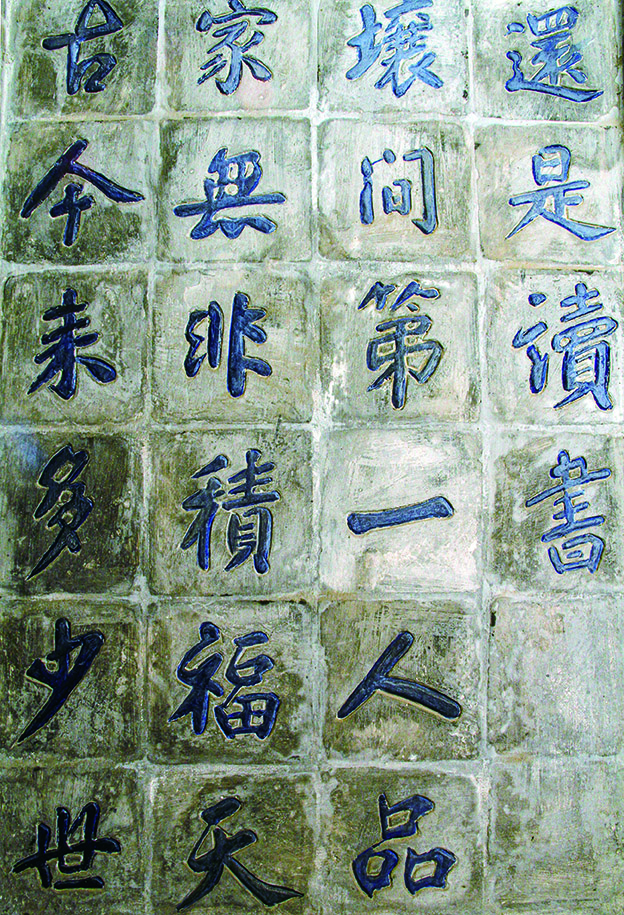 古今来多少世
家無非積福天
壤間第一人品
還是讀書